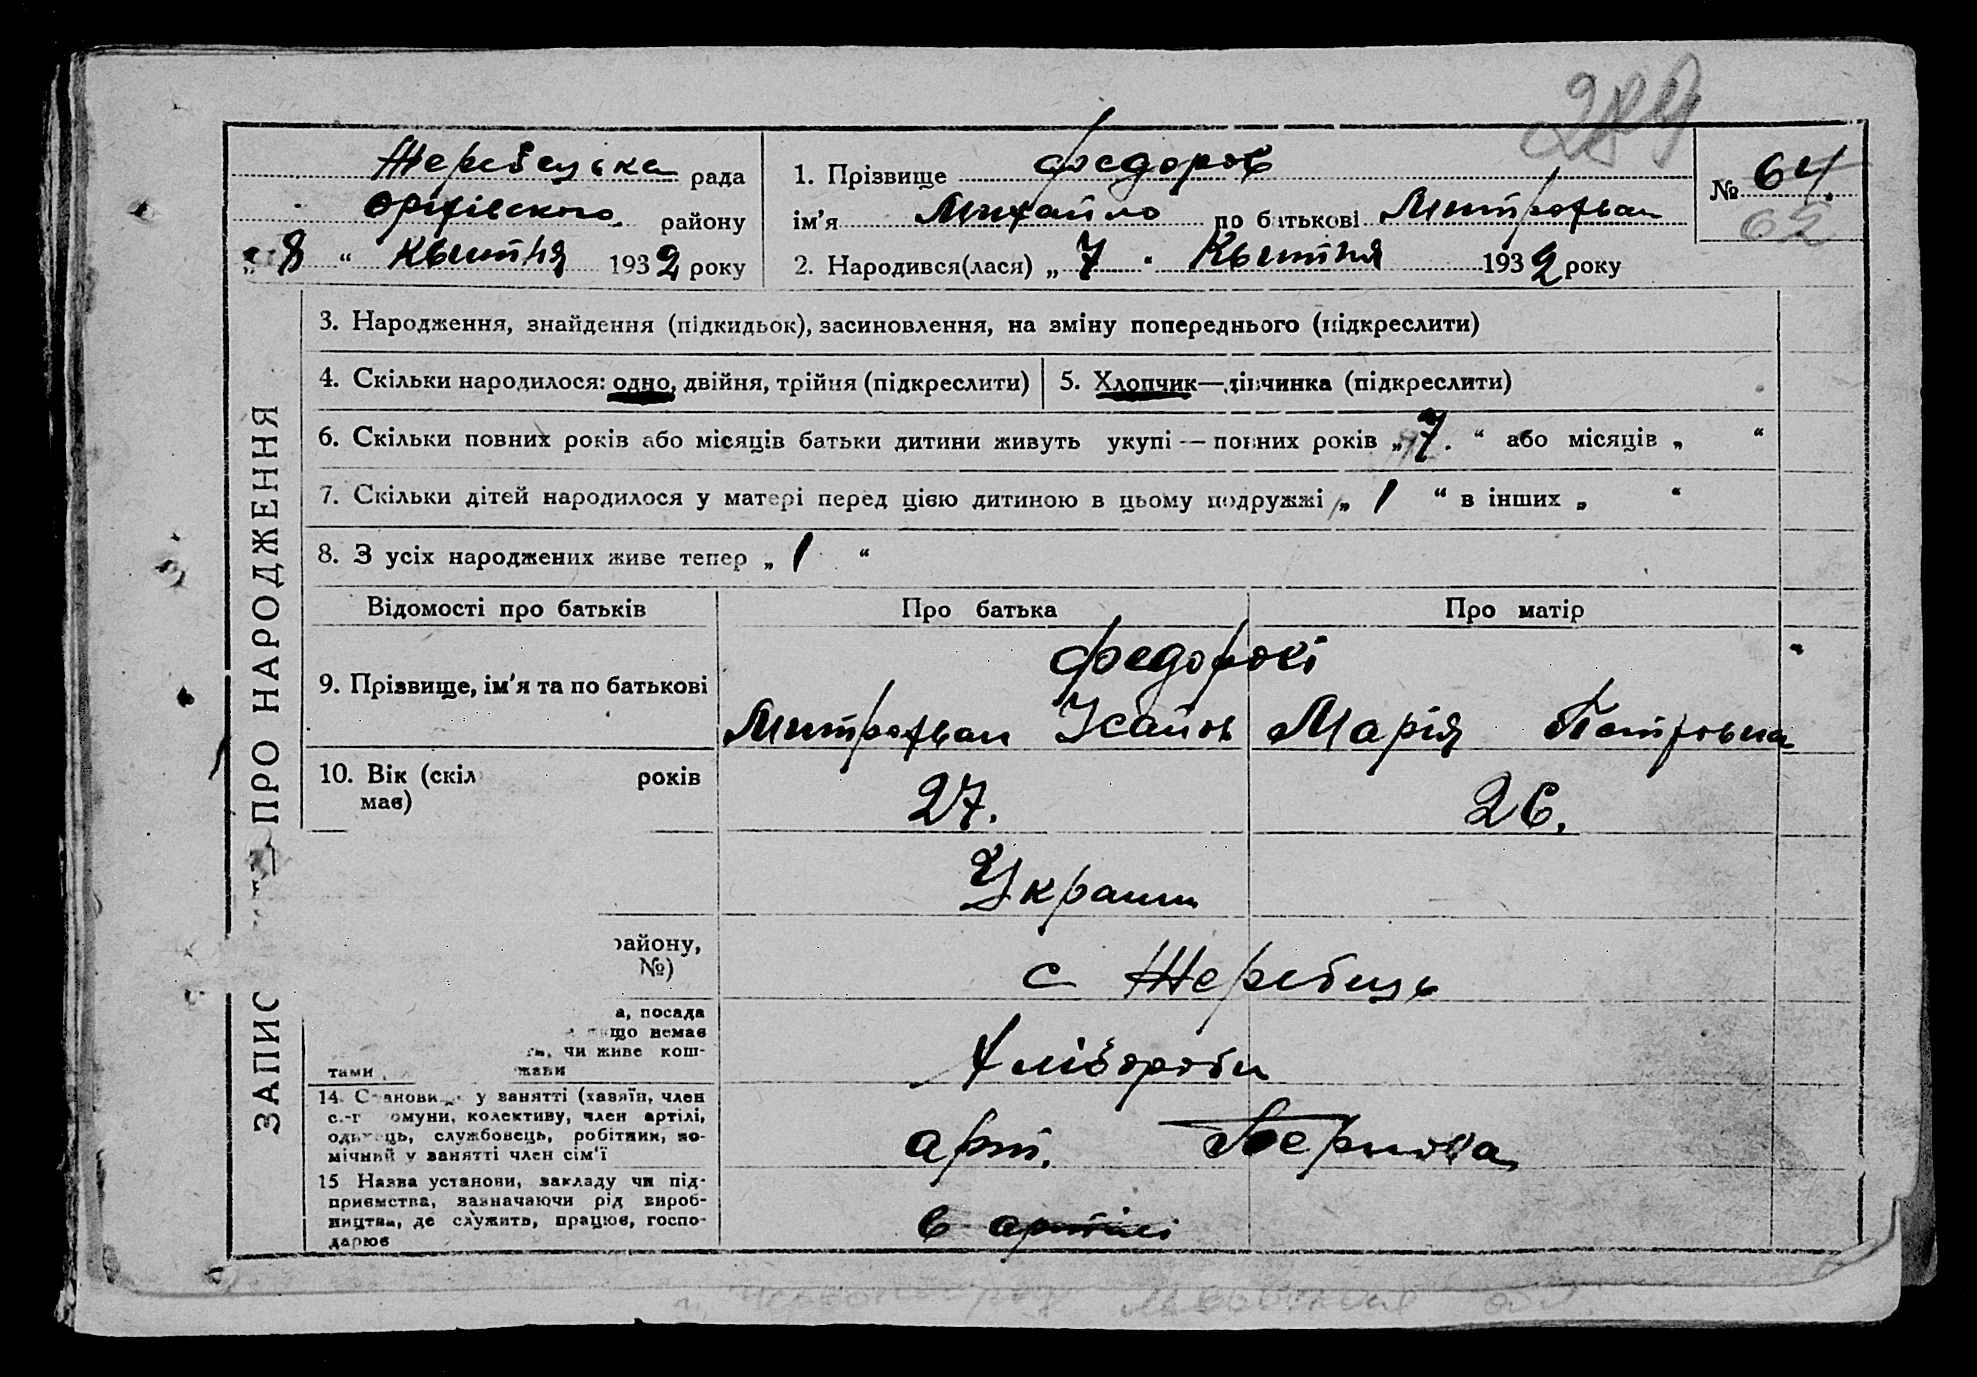 289
Жеребецька рада
Оріхівського району
„ 8 “ Квитня 1932 року
1. Прізвище Федоров
ім’я Михайло по батькові Митрофан
2. Народився(лася) „ 7 “ Квитня 1932 року
№ 64
62
ПРО НАРОДЖЕННЯ
ЗАПИС
3. Народження, знайдення (підкидьок), засиновлення, на зміну попереднього (підкреслити)
4. Скільки народилося: одно, двійня, трійня (підкреслити)
5. Хлопчик—дівчинка (підкреслити)
6. Скільки повних років або місяців батьки дитини живуть укупі — повних років „ 7. “ або місяців „ “
7. Скільки дітей народилося у матері перед цією дитиною в цьому подружжі „ 1 “ в інших „ “
8. З усіх народжених живе тепер „ 1 “
Відомості про батьків
Про батька
Про матір
9. Прізвище, ім’я та по батькові
Федорові
Митрофан Исайов
Марія Петровна
10. Вік (скіл років
має)
27.
26.
Украин
району,
№)
с Жеребець
а, посада
якщо немає
чи живе кош-
тами жави
Хлібороби
14. Становище у занятті (хазяїн, член
с.-г комуни, колективу, член артілі,
одинець, службовець, робітник, по-
мічний у занятті член сім’ї
арт.
15 Назва установи, закладу чи під-
приємства, зазначаючи рід вироб-
ництва, де служить, працює, госпо-
дарює
в артілі